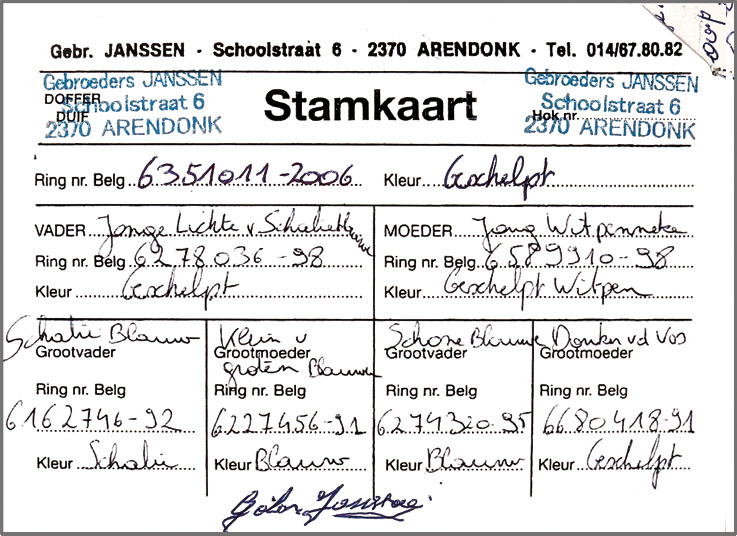 Gebr. JANSSEN - Schoolstraat 6 - 2370 ARENDONK - Tel. 014/67.80.82
Gebroeders JANSSEN
Schoolstraat 6
2370 ARENDONK
Gebroeders JANSSEN
Schoolstraat 6
2370 ARENDONK
DOFFER
DUIF
Stamkaart
Hok nr.
Ring nr. Belg 6351011-2006 Kleur Geschelpt
VADER Jonge Lichte v Schalieblauwe MOEDER Jong Witpenneke
Ring nr. Belg 6278036-98 Ring nr. Belg 6589910-98
Kleur Geschelpt Kleur Geschelpt Witpen
Schalie Blauw Klein v Schone Blauwe Donker vd Vos
Grootvader Grootmoeder Grootvader Grootmoeder
groten Blauwen
Ring nr. Belg Ring nr. Belg Ring nr. Belg Ring nr. Belg
6162746-92 6227456-91 6274320-95 6680418-91
Kleur Schalie Kleur Blauw Kleur Blauw Kleur Geschelpt